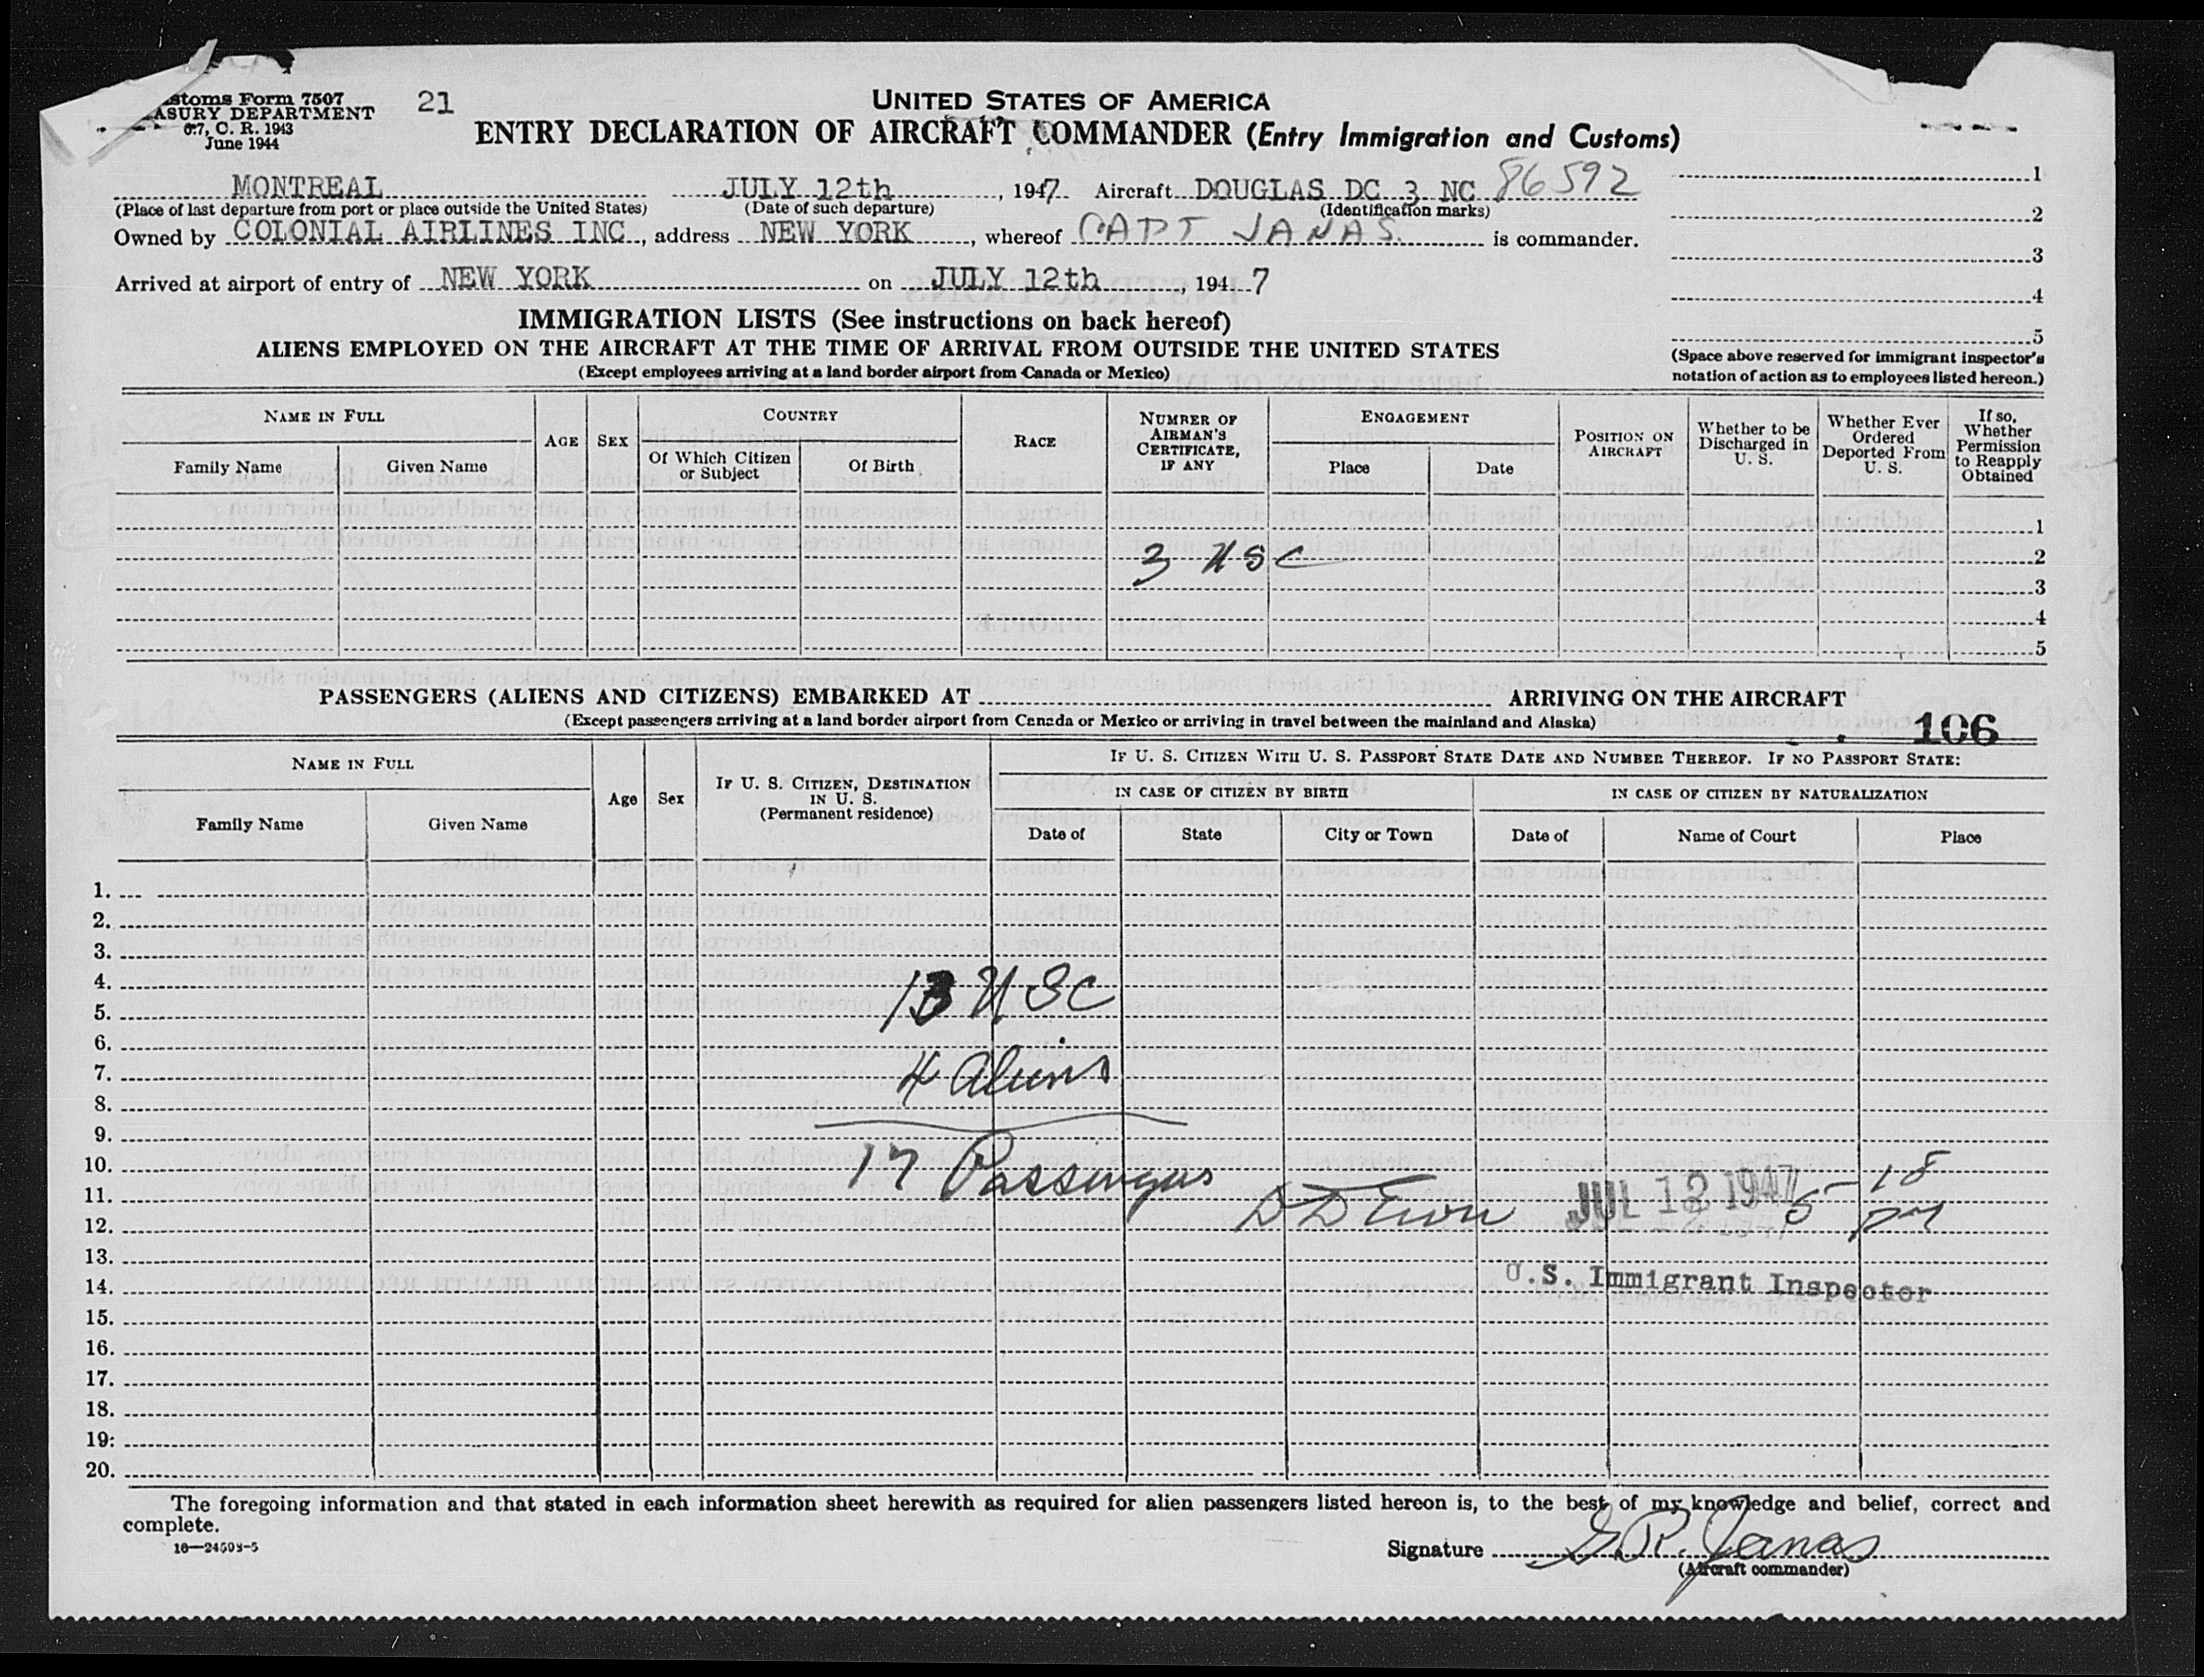 Customs Form 7507
TREASURY DEPARTMENT
6.7, C. R. 1943
June 1944
21
UNITED STATES OF AMERICA
ENTRY DECLARATION OF AIRCRAFT COMMANDER (Entry Immigration and Customs)
MONTREAL JULY 12th, 1947 Aircraft DOUGLAS DC 3 NC 86592
(Place of last departure from port or place outside the United States) (Date of such departure) (Identification marks)
Owned by COLONIAL AIRLINES INC., address NEW YORK, whereof CAPT JANAS. is commander.
Arrived at airport of entry of NEW YORK on JULY 12th, 1947
1
2
3
4
5
(Space above reserved for immigrant inspector's
notation of action as to employees listed hereon.)
IMMIGRATION LISTS (See instructions on back hereof)
ALIENS EMPLOYED ON THE AIRCRAFT AT THE TIME OF ARRIVAL FROM OUTSIDE THE UNITED STATES
(Except employees arriving at a land border airport from Canada or Mexico)
NAME IN FULL
Family Name Given Name
AGE SEX
COUNTRY
Of Which Citizen or Subject Of Birth
RACE
NUMBER OF AIRMAN'S CERTIFICATE, IF ANY
ENGAGEMENT
Place Date
POSITION ON AIRCRAFT
Whether to be Discharged in U. S.
Whether Ever Ordered Deported From U. S.
If so, Whether Permission to Reapply Obtained
1
3 USC 2
3
4
5
PASSENGERS (ALIENS AND CITIZENS) EMBARKED AT ARRIVING ON THE AIRCRAFT
(Except passengers arriving at a land border airport from Canada or Mexico or arriving in travel between the mainland and Alaska)
106
NAME IN FULL
Family Name Given Name
Age Sex
IF U. S. CITIZEN, DESTINATION IN U. S. (Permanent residence)
IF U. S. CITIZEN WITH U. S. PASSPORT STATE DATE AND NUMBER THEREOF. IF NO PASSPORT STATE:
IN CASE OF CITIZEN BY BIRTH IN CASE OF CITIZEN BY NATURALIZATION
Date of State City or Town Date of Name of Court Place
1.
2.
3.
4. 13 USC
5.
6.
7. 4 Aliens
8.
9.
10. 17 Passengers
11. JUL 12 1947 6-18
12. pm
13.
14. U.S. Immigrant Inspector
15.
16.
17.
18.
19.
20.
The foregoing information and that stated in each information sheet herewith as required for alien passengers listed hereon is, to the best of my knowledge and belief, correct and
complete.
16—24603-5
Signature G.R. Janas
(Aircraft commander)